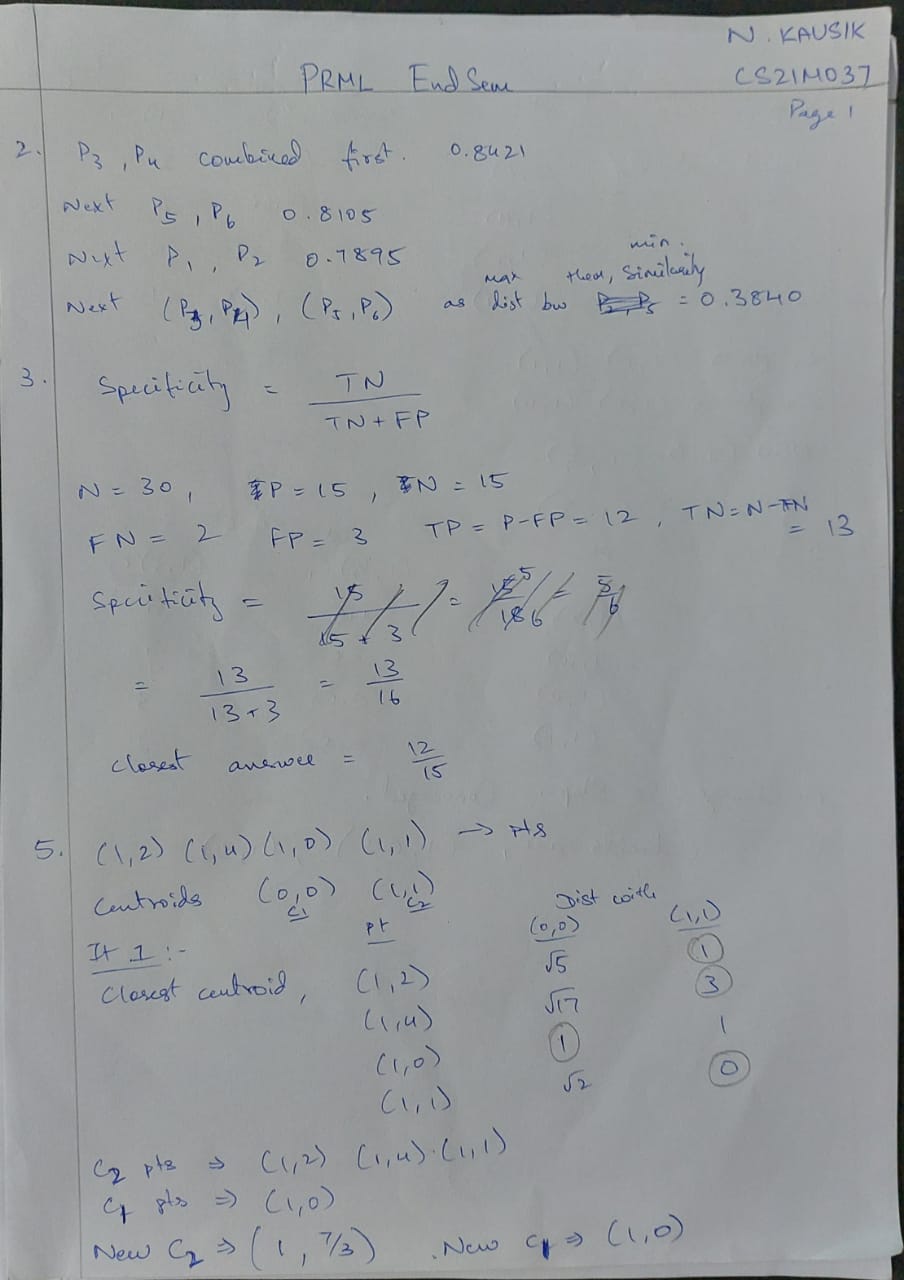 N. KAUSIK
PRML End Sem
CS21M037
Page 1
2. P3, P4 combined first. 0.8421
Next P5, P6 0.8105
Next P1, P2 0.7895
Next (P3, P4), (P5, P6) as max dist bw then, min. similarity = 0.3840
3. Specificity = TN / TN + FP
N = 30, P = 15, N = 15
FN = 2 FP = 3 TP = P-FP = 12, TN = N-FN = 13
Specificity =
= 13 / 13+3 = 13/16
closest answer = 12/15
5. (1,2) (1,4) (1,0) (1,1) → pts
Centroids (0,0) C1 (1,1) C2
Dist with
It 1 :- pt (0,0) (1,1)
Closest centroid, (1,2) √5 1
(1,4) √17 3
(1,0) 1 1
(1,1) √2 0
C2 pts ⇒ (1,2) (1,4) (1,1)
C1 pts ⇒ (1,0)
New C2 ⇒ (1, 7/3) New C1 ⇒ (1,0)